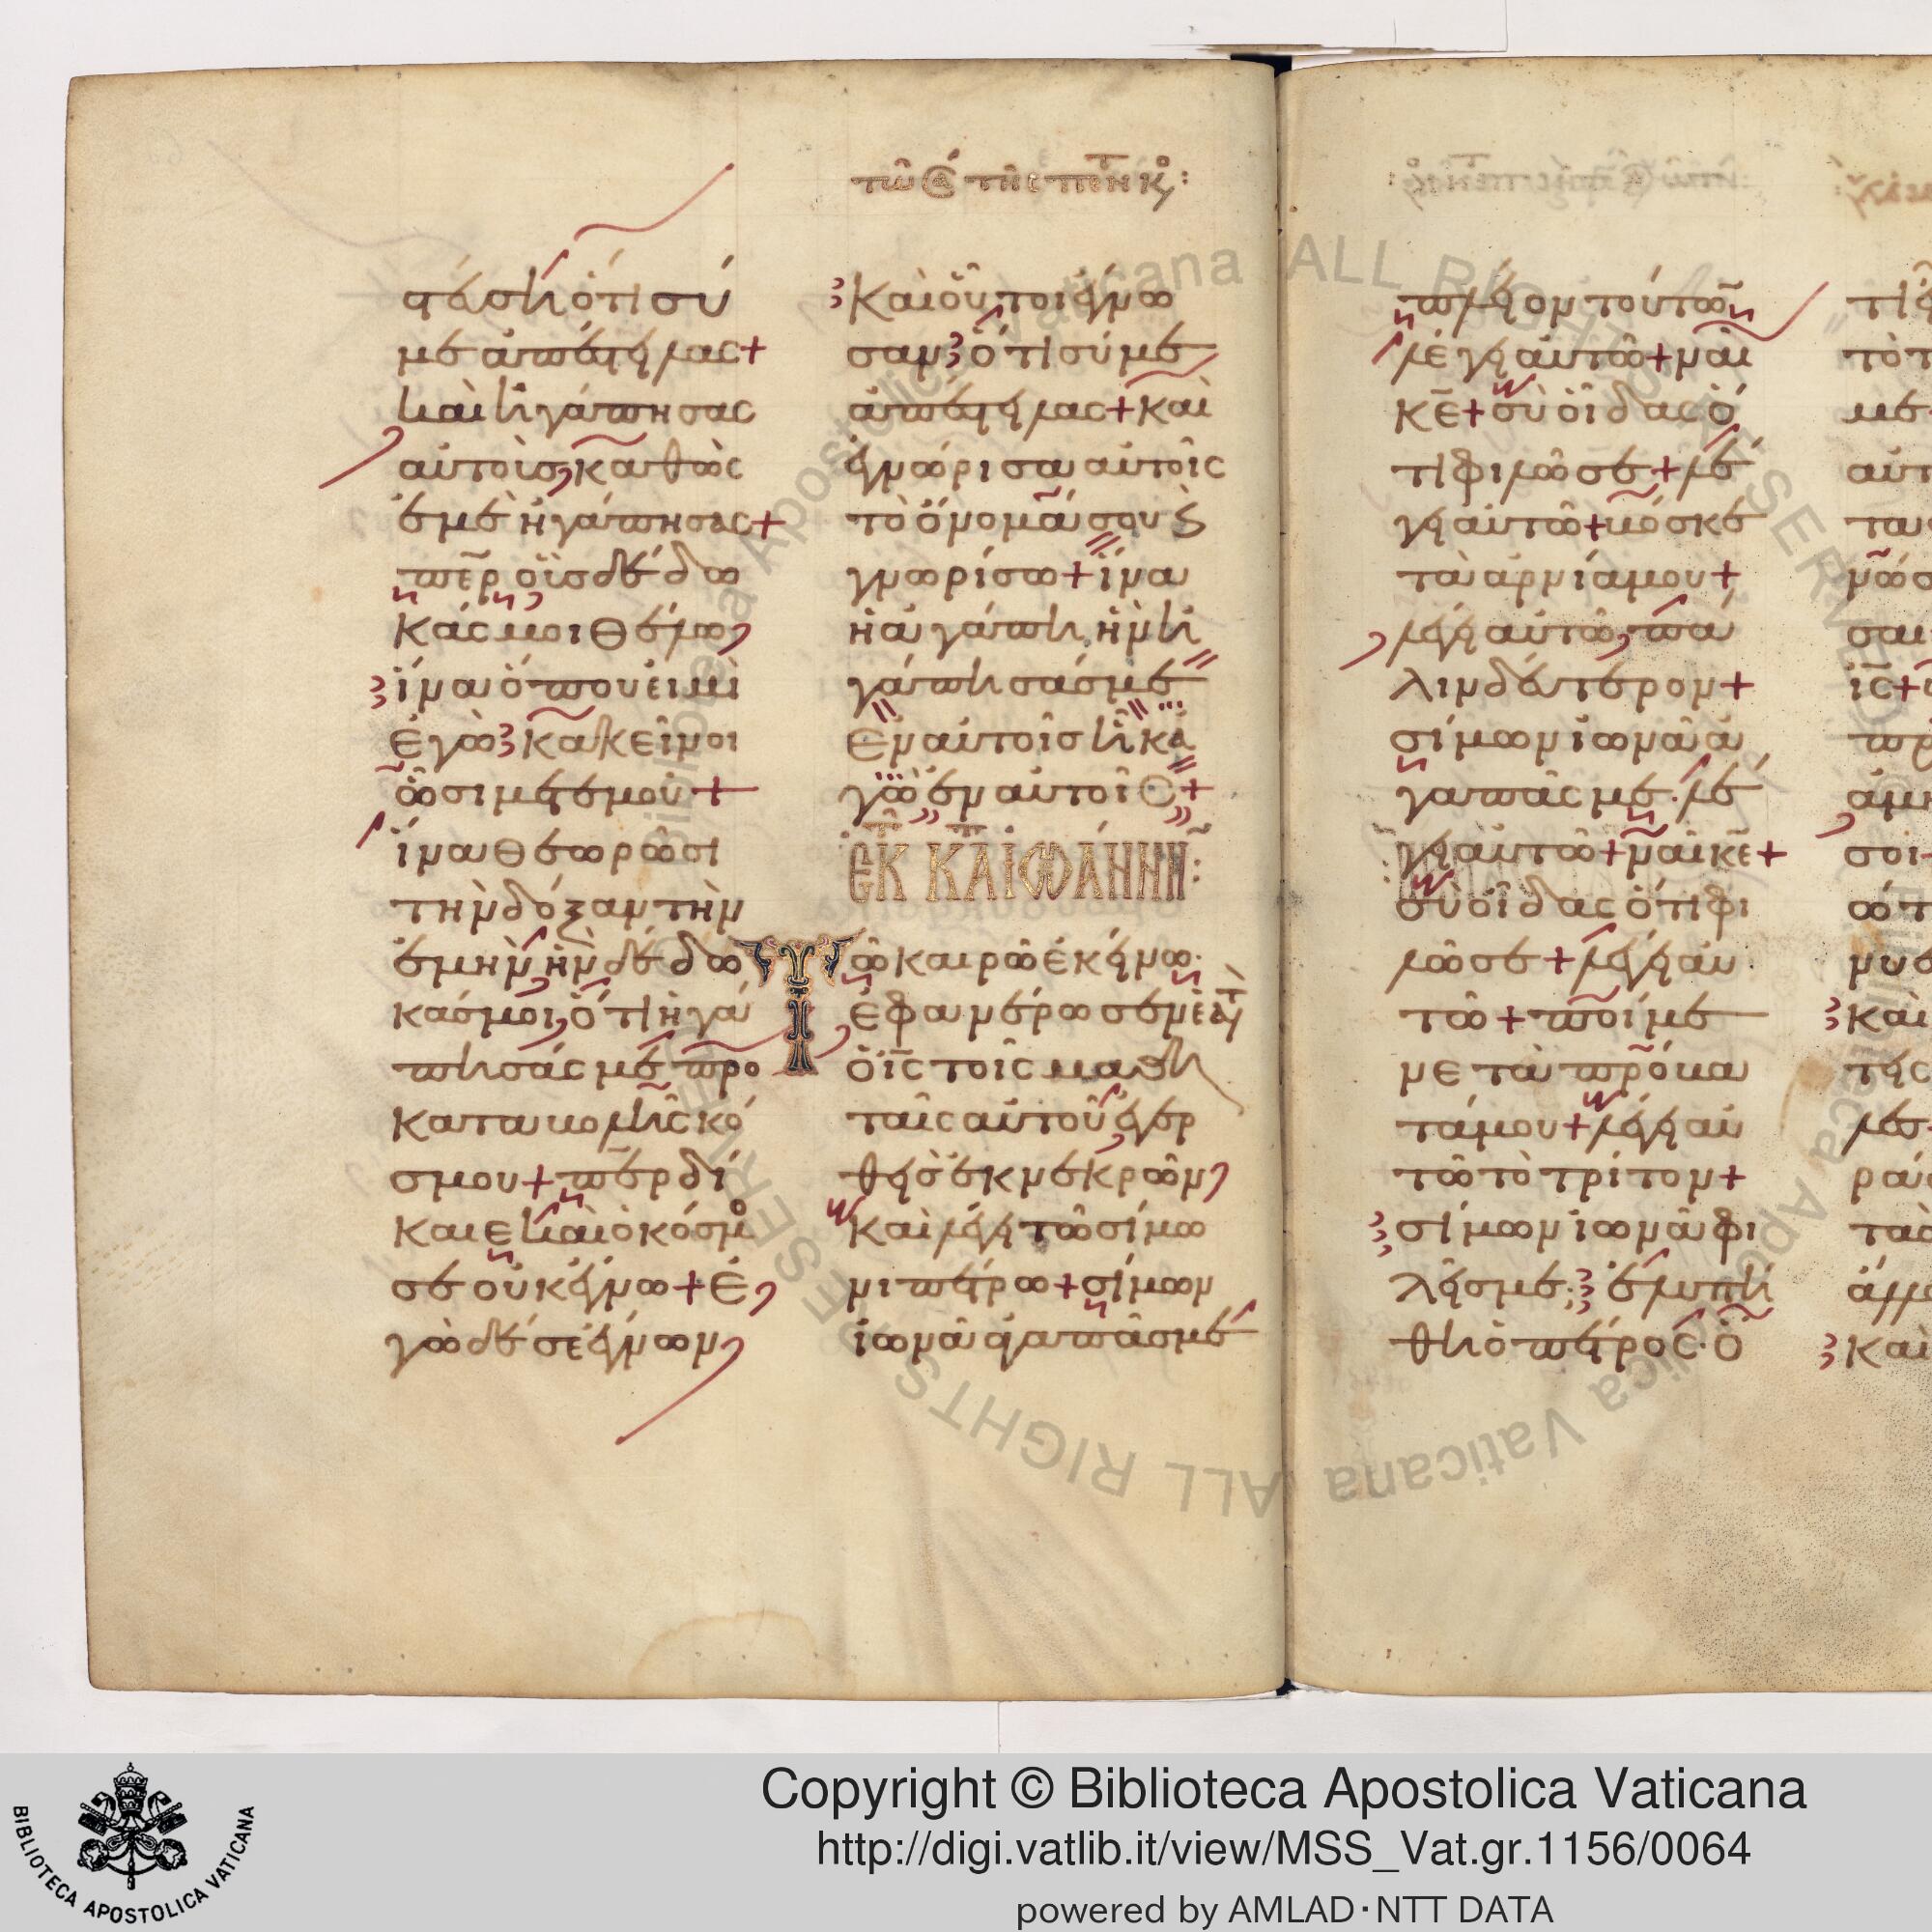 τῶ Σα τῆς πεντηκο:
σκη ὅτι σύ
με ἀπέστειλας+
καὶ ἠγάπησας
αὐτοὺς, καθὼς
ἐμὲ ἠγάπησας+
περ οὓς δέδω
κάς μοι θέλω,
ἵνα ὅπου εἰμὶ
ἐγὼ κἀκεῖνοι
ὦσι μετ ἐμοῦ+
ἵνα θεωρῶσι
τὴν δόξαν τὴν
ἐμὴν ἣν δέδω
κάς μοι, ὅτι ἠγά
πησάς με προ
καταβολῆς κό
σμου+ περ δί
καιε καὶ ὁ κόσμο
σε οὐκ ἔγνω+ ἐ
γὼ δέ σε ἔγνων,
Καὶ οὗτοι ἔγνω
σαν ὅτι σύ με
ἀπέστειλας+ καὶ
ἐγνώρισα αὐτοῖς
τὸ ὄνομά σου ϗ
γνωρίσω+ ἵνα
ἡ ἀγάπη, ἣν ἠ
γάπησάς με
ἐν αὐτοῖς ἦ κἀ
γὼ ἐν αὐτοῖς+
ἐκ κα ἰωάννην:
Τῶ καιρῶ ἐκείνω·
ἐφανέρωσεν ἑαυτ
ὁ ις τοῖς μαθη
ταῖς αὐτοῦ ἐγερ
θεὶς ἐκ νεκρῶν,
Καὶ λέγει τῶ σίμω
νι πέτρω+ σίμων
ἰωνᾶ ἀγαπᾶς με
πλεῖον τούτων
λέγει αὐτῶ+ ναὶ
κε+ σὺ οἶδας ὅ
τι φιλῶ σε+ λέ
γει αὐτῶ+ βόσκε
τὰ ἀρνία μου+
λέγει αὐτῶ, πά
λιν δεύτερον+
σίμων ἰωνᾶ ἀ
γαπᾶς με· λέ
γει αὐτῶ+ ναὶ κε+
σὺ οἶδας ὅτι φι
λῶ σε+ λέγει αὐ
τῶ+ ποίμαι
νε τὰ πρόβα
τά μου+ λέγει αὐ
τῶ τὸ τρίτον+
σίμων ἰωνᾶ φι
λεῖς με; ἐλυπή
θη ὁ πέτρος· ὅ
Copyright © Biblioteca Apostolica Vaticana
http://digi.vatlib.it/view/MSS_Vat.gr.1156/0064
powered by AMLAD·NTT DATA
BIBLIOTECA APOSTOLICA VATICANA